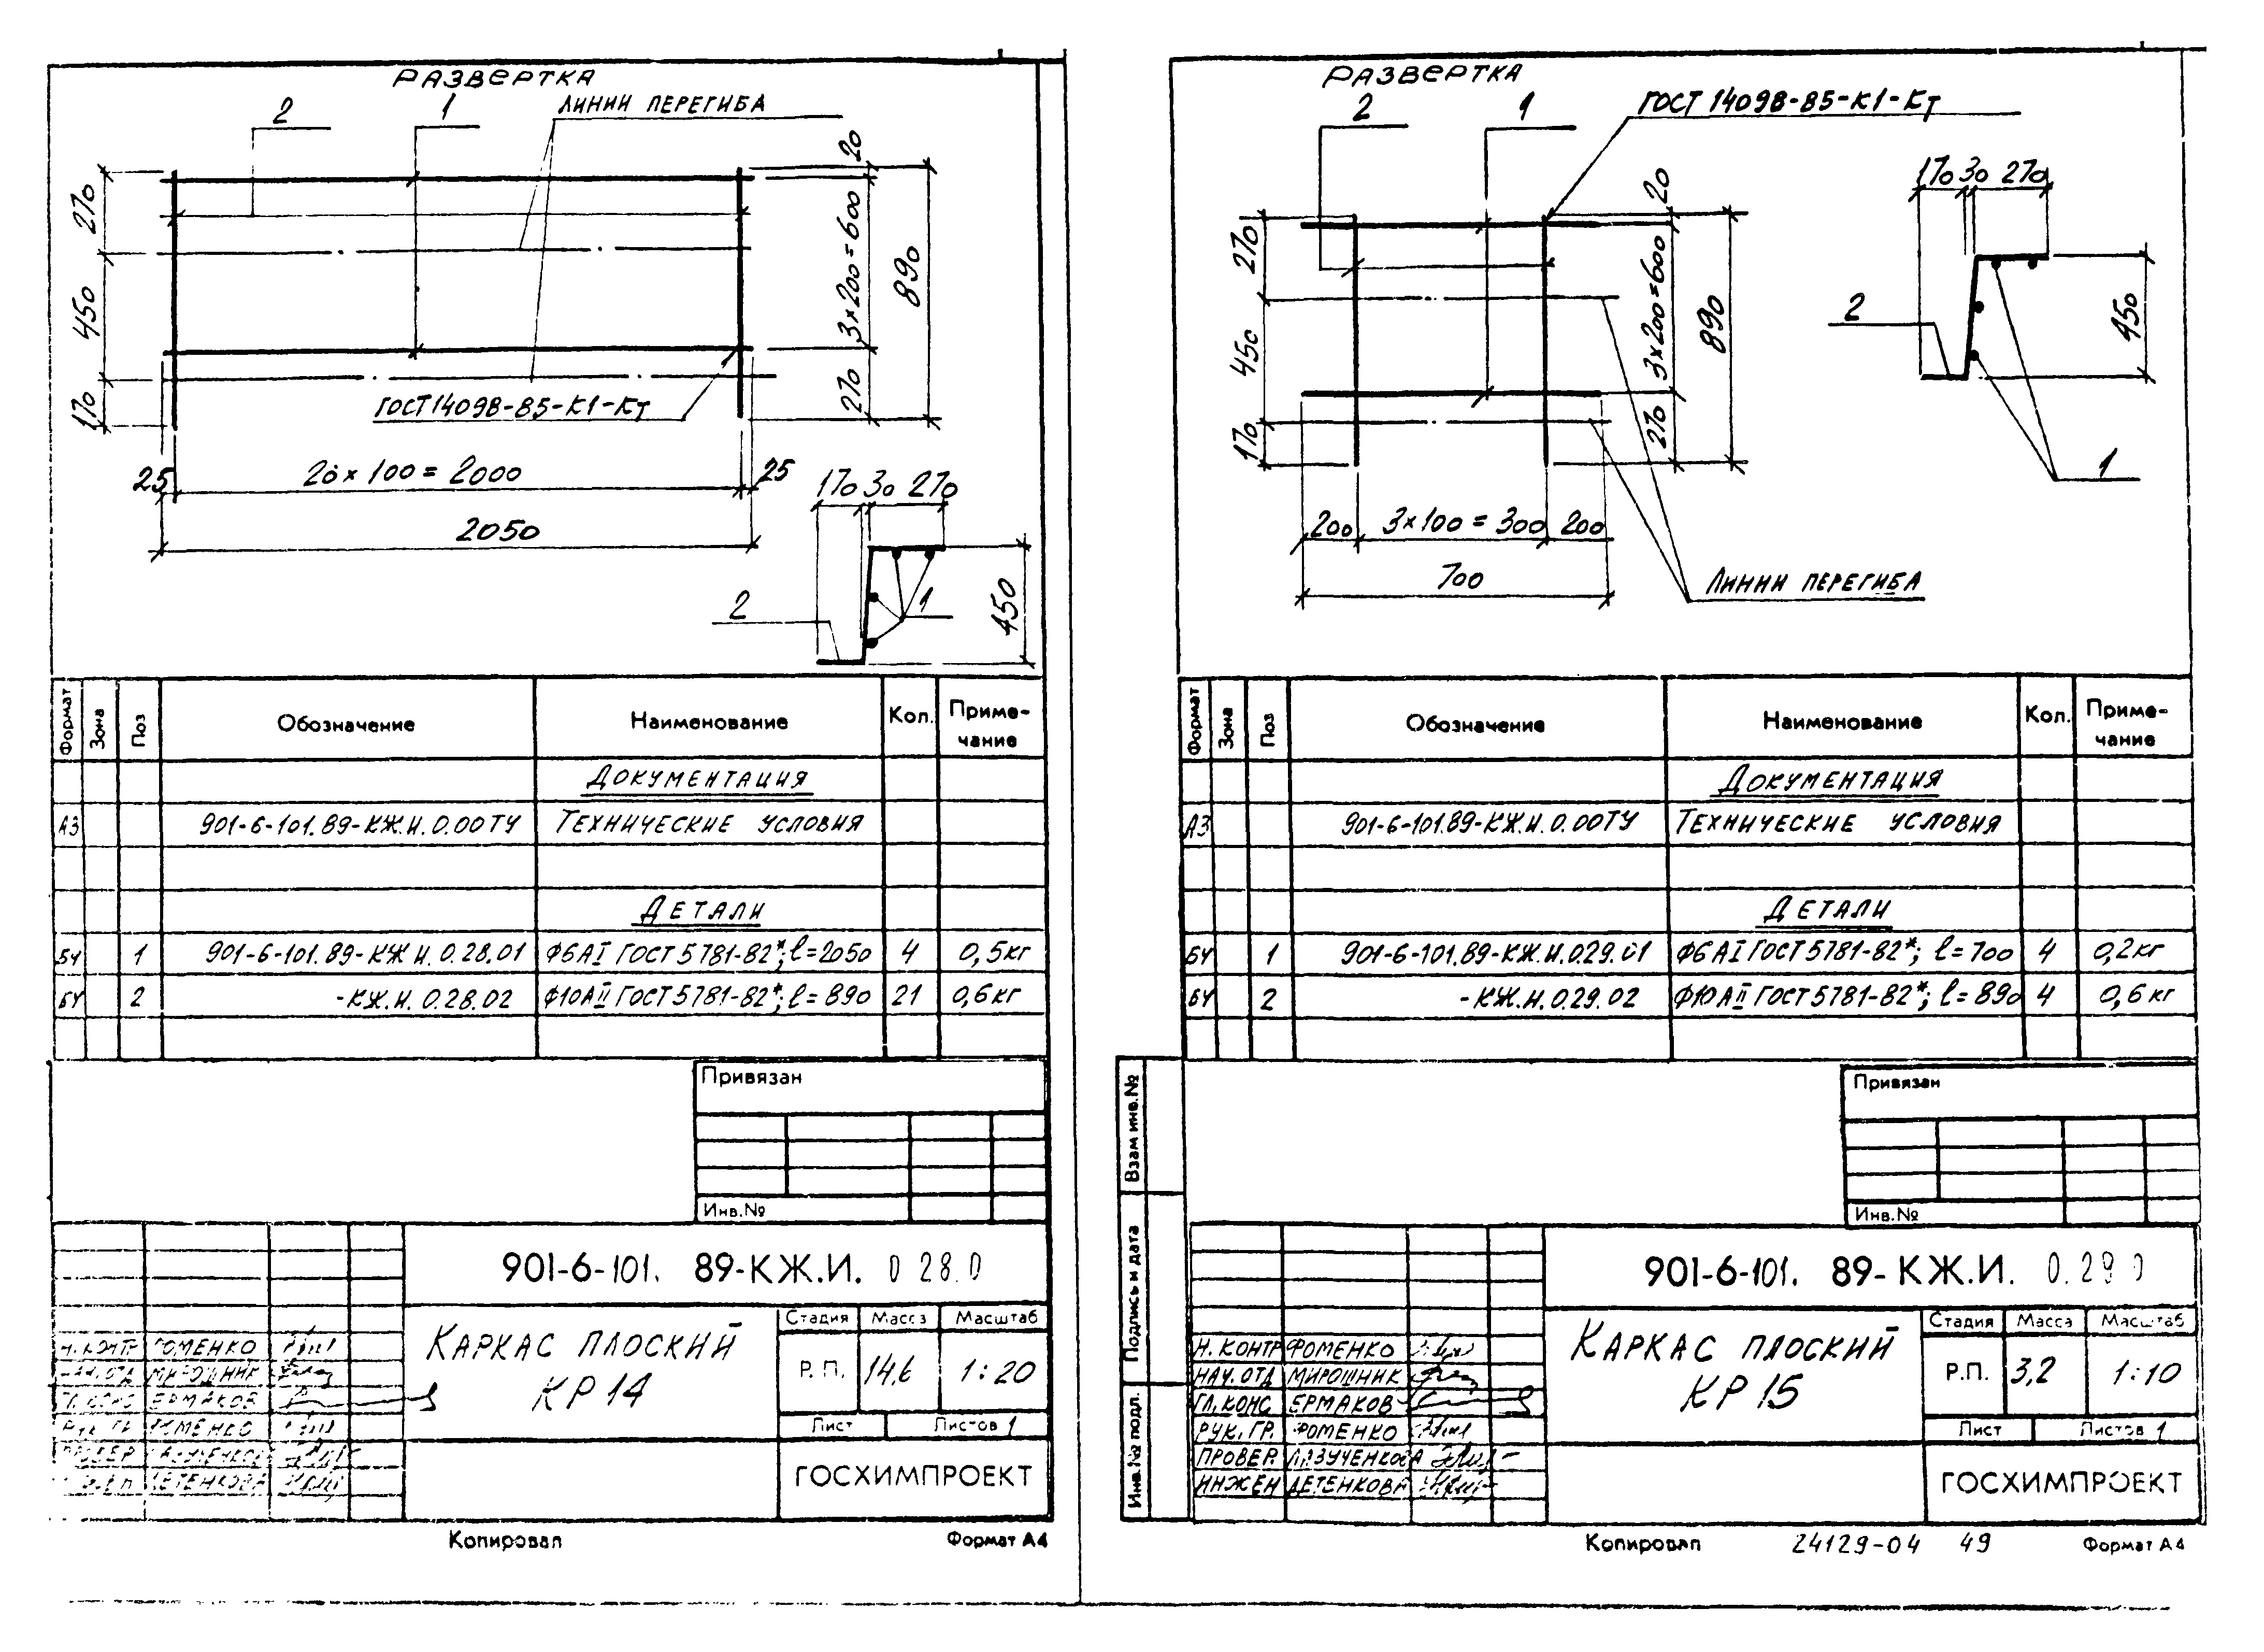 РАЗВЕРТКА
2
1
ЛИНИИ ПЕРЕГИБА
270
450
170
20
3×200=600
270
890
ГОСТ 14098-85-К1-Кт
25
20×100=2000
25
2050
170 30 270
450
2
1
Формат Зона Поз Обозначение Наименование Кол. Приме-
чание
ДОКУМЕНТАЦИЯ
А3 901-6-101.89-КЖ.И.0.00ТУ ТЕХНИЧЕСКИЕ УСЛОВИЯ
ДЕТАЛИ
БЧ 1 901-6-101.89-КЖ.И.0.28.01 Ф6АI ГОСТ 5781-82*; l=2050 4 0,5кг
БЧ 2 -КЖ.И.0.28.02 Ф10АII ГОСТ 5781-82*; l=890 21 0,6кг
Привязан
Инв.№
901-6-101. 89-КЖ.И. 0 28.0
КАРКАС ПЛОСКИЙ
КР14
Стадия Масса Масштаб
Р.П. 14,6 1:20
Лист Листов 1
ГОСХИМПРОЕКТ
Н.КОНТР ФОМЕНКО
МИРОШНИК
ЕРМАКОВ
Копировал Формат А4
РАЗВЕРТКА
2
1
ГОСТ 14098-85-К1-Кт
270
450
170
20
3×200=600
270
890
200 3×100=300 200
700
ЛИНИИ ПЕРЕГИБА
170 30 270
450
2
1
Формат Зона Поз Обозначение Наименование Кол. Приме-
чание
ДОКУМЕНТАЦИЯ
А3 901-6-101.89-КЖ.И.0.00ТУ ТЕХНИЧЕСКИЕ УСЛОВИЯ
ДЕТАЛИ
БЧ 1 901-6-101.89-КЖ.И.0.29.01 Ф6АI ГОСТ 5781-82*; l=700 4 0,2кг
БЧ 2 -КЖ.И.0.29.02 Ф10АII ГОСТ 5781-82*; l=890 4 0,6кг
Привязан
Инв.№
Взам инв.№
Подпись и дата
Инв.№ подл.
901-6-101. 89-КЖ.И. 0.29 0
КАРКАС ПЛОСКИЙ
КР15
Стадия Масса Масштаб
Р.П. 3,2 1:10
Лист Листов 1
ГОСХИМПРОЕКТ
Н.КОНТР ФОМЕНКО
НАЧ.ОТД МИРОШНИК
ГЛ.КОНС ЕРМАКОВ
РУК.ГР. ФОМЕНКО
ПРОВЕР. ЛАЗУЧЕНКОВА
ИНЖЕН ДЕТЕНКОВА
Копировал 24129-04 49 Формат А4